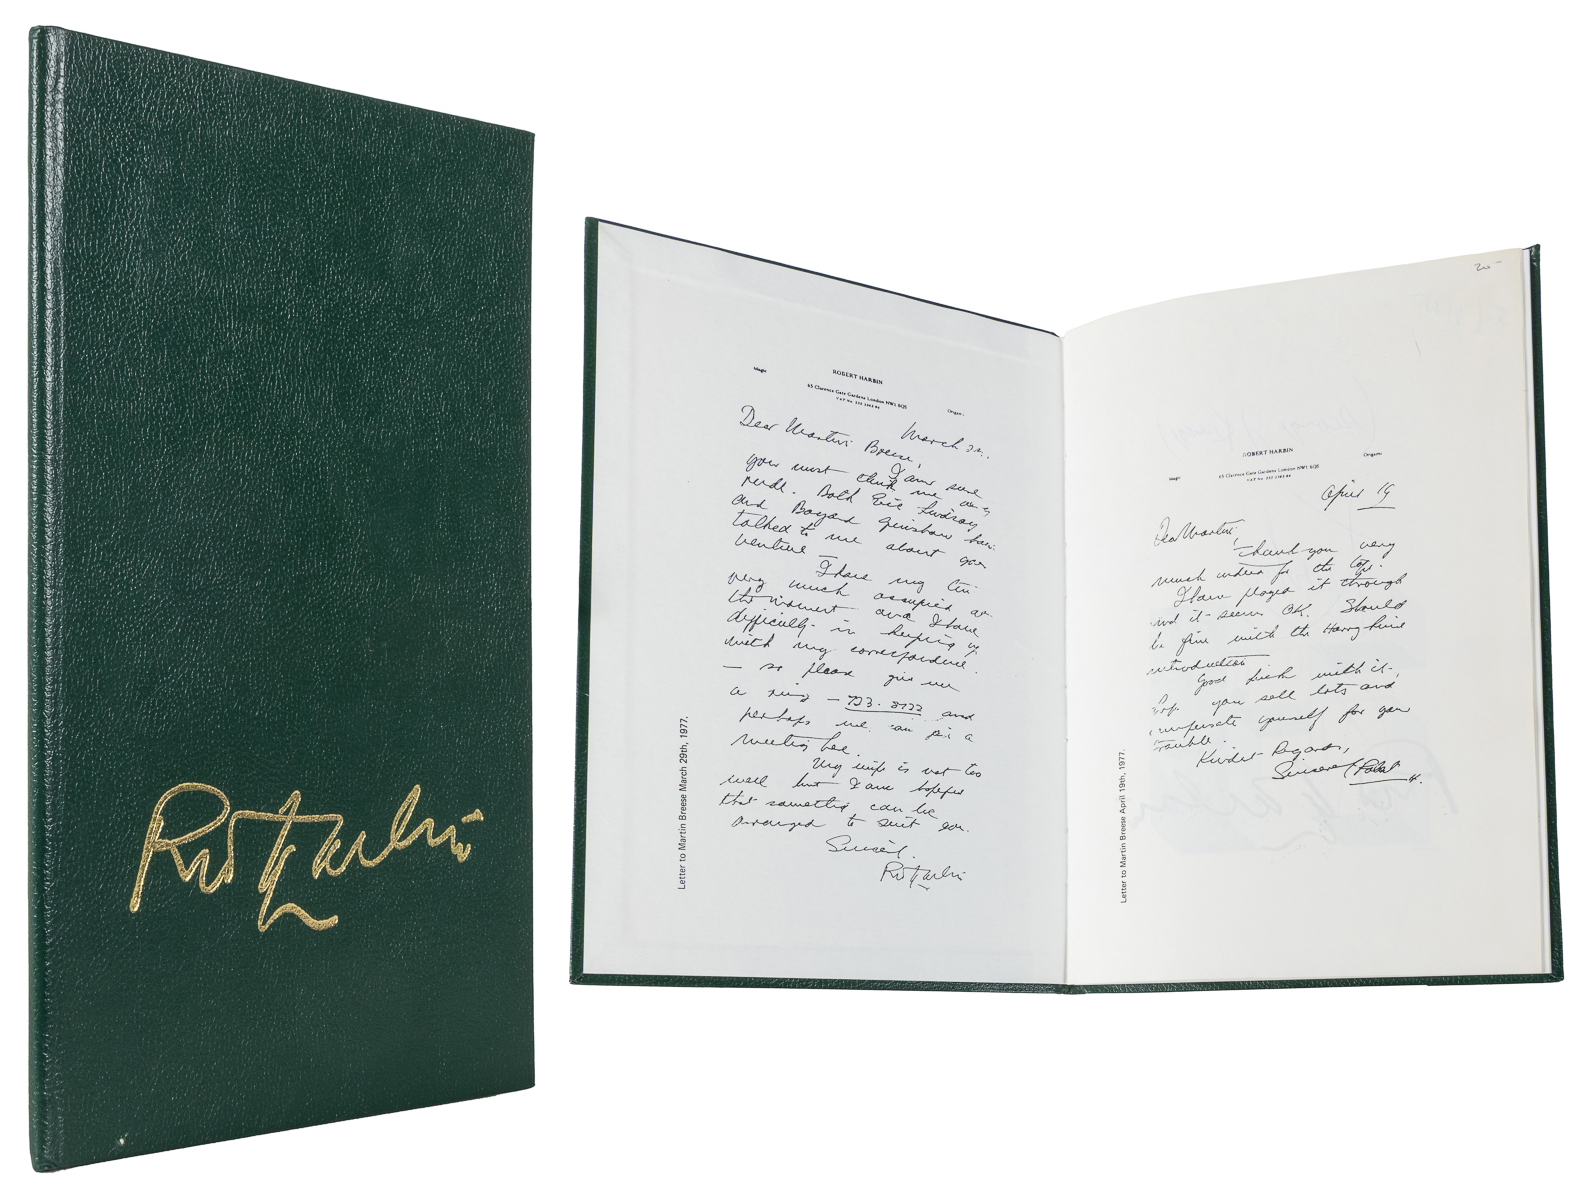 Robt Harbin
Magic
ROBERT HARBIN
65 Clarence Gate Gardens London NW1 6QS
Origami
March
Dear Martin Breese,
I am sure
you must think me
rude. Both Eric Lindsay
and Bayard Grimshaw have
talked to me about your
venture —
I have my
very much occupied at
the moment and I have
difficulty in keeping up
with my correspondence
— so please give me
a ring — 723.8722 and
perhaps we can fix a
meeting here.
My wife is not too
well but I am hopeful
that something can be
arranged to suit you.
Sincerely.
Robt Harbin
Letter to Martin Breese March 29th, 1977.
20-
ROBERT HARBIN
Magic
65 Clarence Gate Gardens London NW1 6QS
Origami
April 19
Dear Martin,
Thank you very
much indeed for the tape.
I have played it through
and it seems OK. Should
be fine with the
introduction
Good luck with it,
you sell lots and
compensate yourself for your
trouble.
Kindest Regards,
Sincerely
Letter to Martin Breese April 19th, 1977.